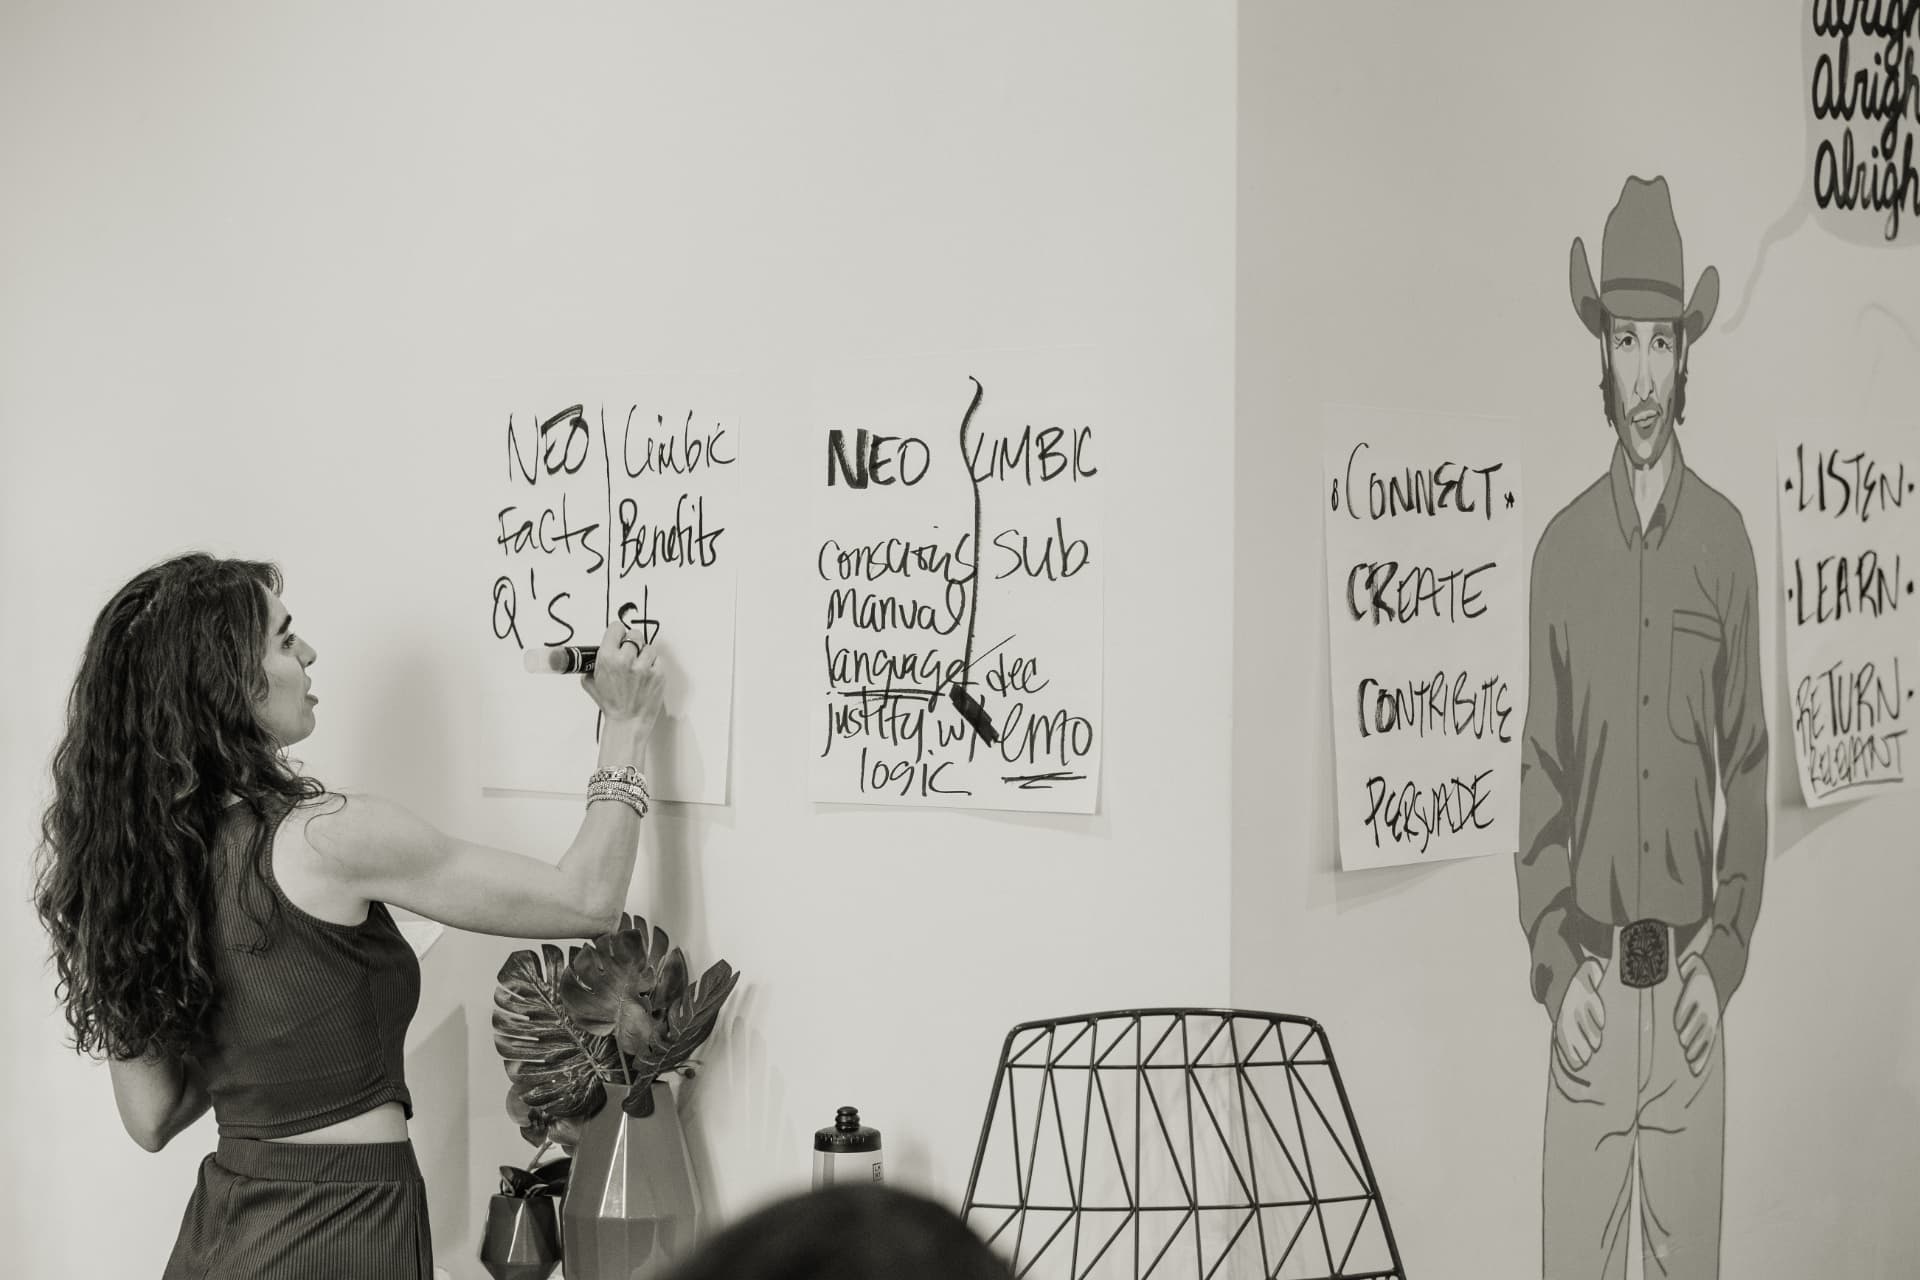 NEO Limbic
Facts Benefits
Q's st
NEO LIMBIC
conscious sub
manual
language dec
justify w/ emo
logic
CONNECT
CREATE
CONTRIBUTE
PERSUADE
Alrigh
Alrigh
Alrigh
•LISTEN•
•LEARN•
RETURN•
RELEVANT